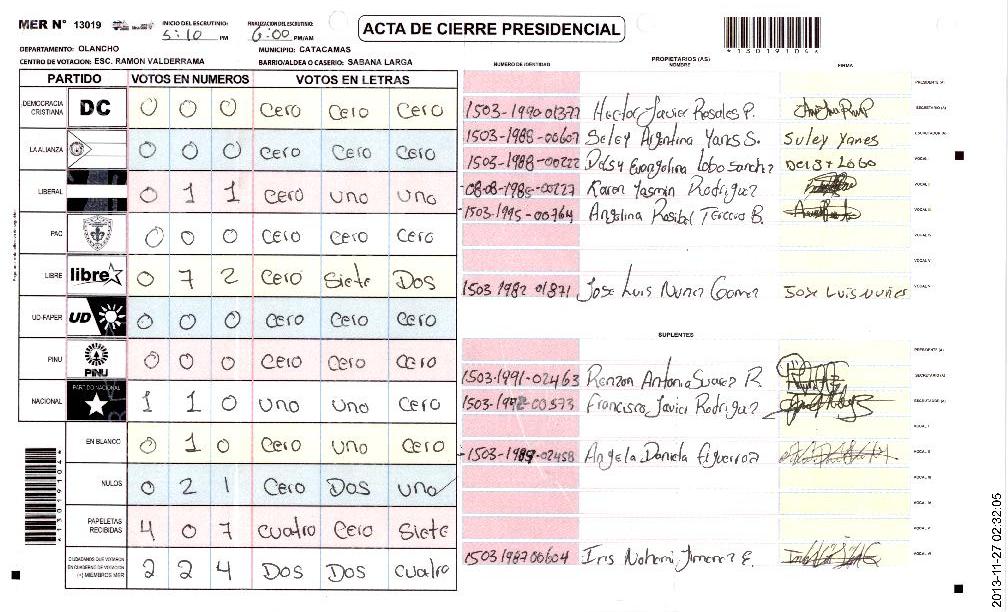 MER N° 13019 INICIO DEL ESCRUTINIO: 5:10 PM FINALIZACION DEL ESCRUTINIO: 6:00 PM/AM ACTA DE CIERRE PRESIDENCIAL
*13019104*
DEPARTAMENTO: OLANCHO MUNICIPIO: CATACAMAS
CENTRO DE VOTACION: ESC. RAMON VALDERRAMA BARRIO/ALDEA O CASERIO: SABANA LARGA
NUMERO DE IDENTIDAD PROPIETARIOS (AS) NOMBRE FIRMA
PARTIDO VOTOS EN NUMEROS VOTOS EN LETRAS
PRESIDENTE (A)
DEMOCRACIA CRISTIANA DC 0 0 0 Cero Cero Cero
1503-1990-01377 Hector Javier Rosales P. SECRETARIO (A)
1503-1988-00607 Suley Argentina Yanes S. Suley Yanes ESCRUTADOR (A)
LA ALIANZA 0 0 0 Cero Cero Cero
1503-1988-00222 Deisy Evangelina Lobo Sanchez Deisy Lobo VOCAL I
LIBERAL 0 1 1 Cero uno uno
Karen Yasmin Rodriguez VOCAL II
1503-1995-00764 Angelina Rosibel Tercero B. VOCAL III
PAC 0 0 0 Cero Cero Cero
VOCAL IV
VOCAL V
LIBRE libre 0 7 2 Cero Siete Dos
1503 1982 01871 Jose Luis Nunez Gomez Jose Luis Nuñes VOCAL VI
UD-FAPER UD 0 0 0 Cero Cero Cero
SUPLENTES
PRESIDENTE (A)
PINU PINU 0 0 0 Cero Cero Cero
1503-1991-02463 Renzon Antonio Suarez R. SECRETARIO (A)
NACIONAL PARTIDO NACIONAL 1 1 0 uno uno Cero
1503-1992-00573 Francisco Javier Rodriguez ESCRUTADOR (A)
VOCAL I
EN BLANCO 0 1 0 Cero uno Cero
1503-1989-02458 Angela Daniela Figueroa VOCAL II
VOCAL III
NULOS 0 2 1 Cero Dos uno
VOCAL IV
PAPELETAS RECIBIDAS 4 0 7 cuatro Cero Siete
VOCAL V
CIUDADANOS QUE VOTARON EN CUADERNO DE VOTACION (+) MIEMBROS MER 2 2 4 Dos Dos cuatro
1503 1987 00604 Iris Nohemi Jimenez E. VOCAL VI
*13019104*
2013-11-27 02:32:05